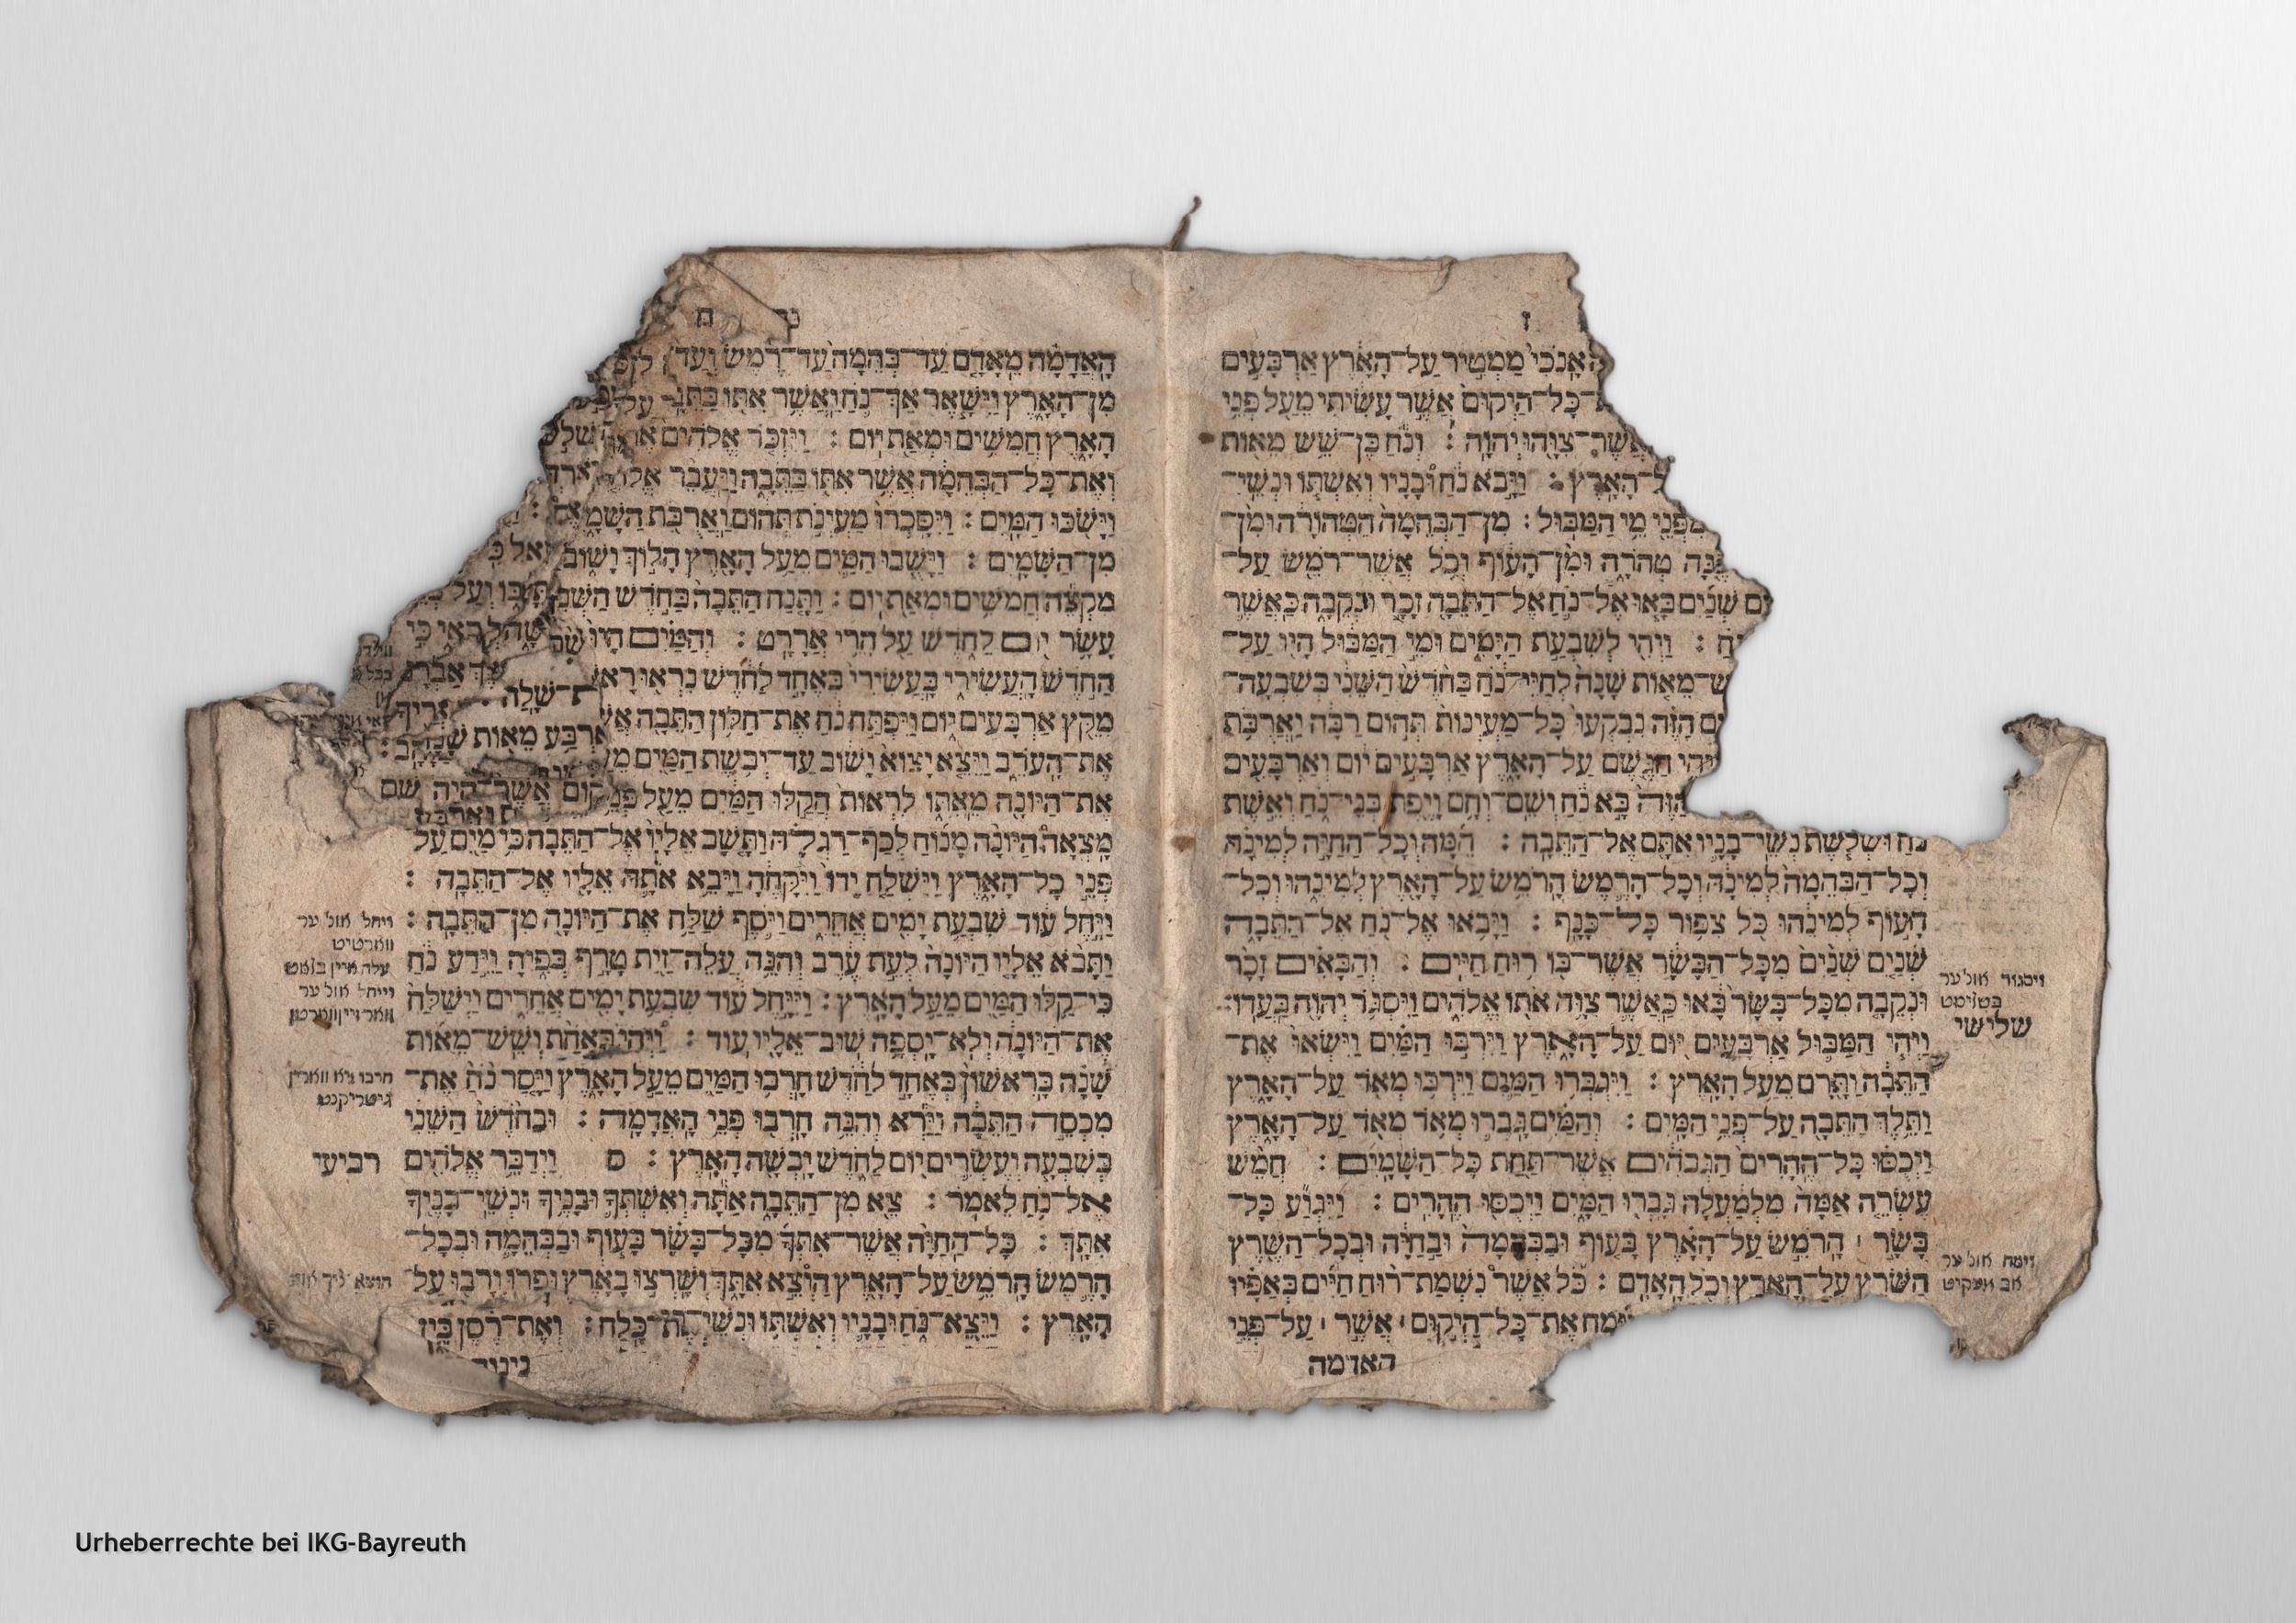 ז
אָנֹכִי מַמְטִיר עַל־הָאָרֶץ אַרְבָּעִים
כָּל־הַיְקוּם אֲשֶׁר עָשִׂיתִי מֵעַל פְּנֵי
אֲשֶׁר־צִוָּהוּ יְהוָה : וְנֹחַ בֶּן־שֵׁשׁ מֵאוֹת
הָאָרֶץ : וַיָּבֹא נֹחַ וּבָנָיו וְאִשְׁתּוֹ וּנְשֵׁי־
מִפְּנֵי מֵי הַמַּבּוּל : מִן־הַבְּהֵמָה הַטְּהוֹרָה וּמִן־
טְהֹרָה וּמִן־הָעוֹף וְכֹל אֲשֶׁר־רֹמֵשׂ עַל־
שְׁנַיִם בָּאוּ אֶל־נֹחַ אֶל־הַתֵּבָה זָכָר וּנְקֵבָה כַּאֲשֶׁר
: וַיְהִי לְשִׁבְעַת הַיָּמִים וּמֵי הַמַּבּוּל הָיוּ עַל־
מֵאוֹת שָׁנָה לְחַיֵּי־נֹחַ בַּחֹדֶשׁ הַשֵּׁנִי בְּשִׁבְעָה־
הַזֶּה נִבְקְעוּ כָּל־מַעְיְנוֹת תְּהוֹם רַבָּה וַאֲרֻבֹּת
וַיְהִי הַגֶּשֶׁם עַל־הָאָרֶץ אַרְבָּעִים יוֹם וְאַרְבָּעִים
הַזֶּה בָּא נֹחַ וְשֵׁם־וְחָם וָיֶפֶת בְּנֵי־נֹחַ וְאֵשֶׁת
נֹחַ וּשְׁלֹשֶׁת נְשֵׁי־בָנָיו אִתָּם אֶל־הַתֵּבָה : הֵמָּה וְכָל־הַחַיָּה לְמִינָהּ
וְכָל־הַבְּהֵמָה לְמִינָהּ וְכָל־הָרֶמֶשׂ הָרֹמֵשׂ עַל־הָאָרֶץ לְמִינֵהוּ וְכָל־
הָעוֹף לְמִינֵהוּ כֹּל צִפּוֹר כָּל־כָּנָף : וַיָּבֹאוּ אֶל־נֹחַ אֶל־הַתֵּבָה
שְׁנַיִם שְׁנַיִם מִכָּל־הַבָּשָׂר אֲשֶׁר־בּוֹ רוּחַ חַיִּים : וְהַבָּאִים זָכָר
וּנְקֵבָה מִכָּל־בָּשָׂר בָּאוּ כַּאֲשֶׁר צִוָּה אֹתוֹ אֱלֹהִים וַיִּסְגֹּר יְהוָה בַּעֲדוֹ :
וַיְהִי הַמַּבּוּל אַרְבָּעִים יוֹם עַל־הָאָרֶץ וַיִּרְבּוּ הַמַּיִם וַיִּשְׂאוּ אֶת־
הַתֵּבָה וַתָּרָם מֵעַל הָאָרֶץ : וַיִּגְבְּרוּ הַמַּיִם וַיִּרְבּוּ מְאֹד עַל־הָאָרֶץ
וַתֵּלֶךְ הַתֵּבָה עַל־פְּנֵי הַמָּיִם : וְהַמַּיִם גָּבְרוּ מְאֹד מְאֹד עַל־הָאָרֶץ
וַיְכֻסּוּ כָּל־הֶהָרִים הַגְּבֹהִים אֲשֶׁר־תַּחַת כָּל־הַשָּׁמָיִם : חֲמֵשׁ
עֶשְׂרֵה אַמָּה מִלְמַעְלָה גָּבְרוּ הַמָּיִם וַיְכֻסּוּ הֶהָרִים : וַיִּגְוַע כָּל־
בָּשָׂר ׀ הָרֹמֵשׂ עַל־הָאָרֶץ בָּעוֹף וּבַבְּהֵמָה וּבַחַיָּה וּבְכָל־הַשֶּׁרֶץ
הַשֹּׁרֵץ עַל־הָאָרֶץ וְכֹל הָאָדָם : כֹּל אֲשֶׁר נִשְׁמַת־רוּחַ חַיִּים בְּאַפָּיו
אֶת־כָּל־הַיְקוּם ׀ אֲשֶׁר ׀ עַל־פְּנֵי
האדמה
ויסגור אול ער
שלישי
וימח אול ער
ח
הָאֲדָמָה מֵאָדָם עַד־בְּהֵמָה עַד־רֶמֶשׂ וְעַד
מִן־הָאָרֶץ וַיִּשָּׁאֶר אַךְ־נֹחַ וַאֲשֶׁר אִתּוֹ בַּתֵּבָה עַל
הָאָרֶץ חֲמִשִּׁים וּמְאַת יוֹם : וַיִּזְכֹּר אֱלֹהִים
וְאֶת־כָּל־הַבְּהֵמָה אֲשֶׁר אִתּוֹ בַּתֵּבָה וַיַּעֲבֵר
וַיָּשֹׁכּוּ הַמָּיִם : וַיִּסָּכְרוּ מַעְיְנֹת תְּהוֹם וַאֲרֻבֹּת הַשָּׁמָיִם
מִן־הַשָּׁמָיִם : וַיָּשֻׁבוּ הַמַּיִם מֵעַל הָאָרֶץ הָלוֹךְ וָשׁוֹב
מִקְצֵה חֲמִשִּׁים וּמְאַת יוֹם : וַתָּנַח הַתֵּבָה בַּחֹדֶשׁ
עָשָׂר יוֹם לַחֹדֶשׁ עַל הָרֵי אֲרָרָט : וְהַמַּיִם הָיוּ
הַחֹדֶשׁ הָעֲשִׂירִי בָּעֲשִׂירִי בְּאֶחָד לַחֹדֶשׁ נִרְאוּ
מִקֵּץ אַרְבָּעִים יוֹם וַיִּפְתַּח נֹחַ אֶת־חַלּוֹן הַתֵּבָה
אַרְבַּע מֵאוֹת
אֶת־הָעֹרֵב וַיֵּצֵא יָצוֹא וָשׁוֹב עַד־יְבֹשֶׁת הַמַּיִם
אֶת־הַיּוֹנָה מֵאִתּוֹ לִרְאוֹת הֲקַלּוּ הַמַּיִם מֵעַל פְּנֵי
אֲשֶׁר־הָיָה שָׁם
מָצְאָה הַיּוֹנָה מָנוֹחַ לְכַף־רַגְלָהּ וַתָּשָׁב אֵלָיו אֶל־הַתֵּבָה כִּי מַיִם עַל־
פְּנֵי כָל־הָאָרֶץ וַיִּשְׁלַח יָדוֹ וַיִּקָּחֶהָ וַיָּבֵא אֹתָהּ אֵלָיו אֶל־הַתֵּבָה :
וַיָּחֶל עוֹד שִׁבְעַת יָמִים אֲחֵרִים וַיֹּסֶף שַׁלַּח אֶת־הַיּוֹנָה מִן־הַתֵּבָה :
וַתָּבֹא אֵלָיו הַיּוֹנָה לְעֵת עֶרֶב וְהִנֵּה עֲלֵה־זַיִת טָרָף בְּפִיהָ וַיֵּדַע נֹחַ
כִּי־קַלּוּ הַמַּיִם מֵעַל הָאָרֶץ : וַיִּיָּחֶל עוֹד שִׁבְעַת יָמִים אֲחֵרִים וַיְשַׁלַּח
אֶת־הַיּוֹנָה וְלֹא־יָסְפָה שׁוּב־אֵלָיו עוֹד : וַיְהִי בְּאַחַת וְשֵׁשׁ־מֵאוֹת
שָׁנָה בָּרִאשׁוֹן בְּאֶחָד לַחֹדֶשׁ חָרְבוּ הַמַּיִם מֵעַל הָאָרֶץ וַיָּסַר נֹחַ אֶת־
מִכְסֵה הַתֵּבָה וַיַּרְא וְהִנֵּה חָרְבוּ פְּנֵי הָאֲדָמָה : וּבַחֹדֶשׁ הַשֵּׁנִי
בְּשִׁבְעָה וְעֶשְׂרִים יוֹם לַחֹדֶשׁ יָבְשָׁה הָאָרֶץ : ס וַיְדַבֵּר אֱלֹהִים
אֶל־נֹחַ לֵאמֹר : צֵא מִן־הַתֵּבָה אַתָּה וְאִשְׁתְּךָ וּבָנֶיךָ וּנְשֵׁי־בָנֶיךָ
אִתָּךְ : כָּל־הַחַיָּה אֲשֶׁר־אִתְּךָ מִכָּל־בָּשָׂר בָּעוֹף וּבַבְּהֵמָה וּבְכָל־
הָרֶמֶשׂ הָרֹמֵשׂ עַל־הָאָרֶץ הוֹצֵא אִתָּךְ וְשָׁרְצוּ בָאָרֶץ וּפָרוּ וְרָבוּ עַל־
הָאָרֶץ : וַיֵּצֵא־נֹחַ וּבָנָיו וְאִשְׁתּוֹ וּנְשֵׁי כָּלַח : וְאֶת־רֶסֶן בֵּין
נינוה
ויחל אול ער
ווארטיט
וייחל אול ער
רביעי
Urheberrechte bei IKG-Bayreuth